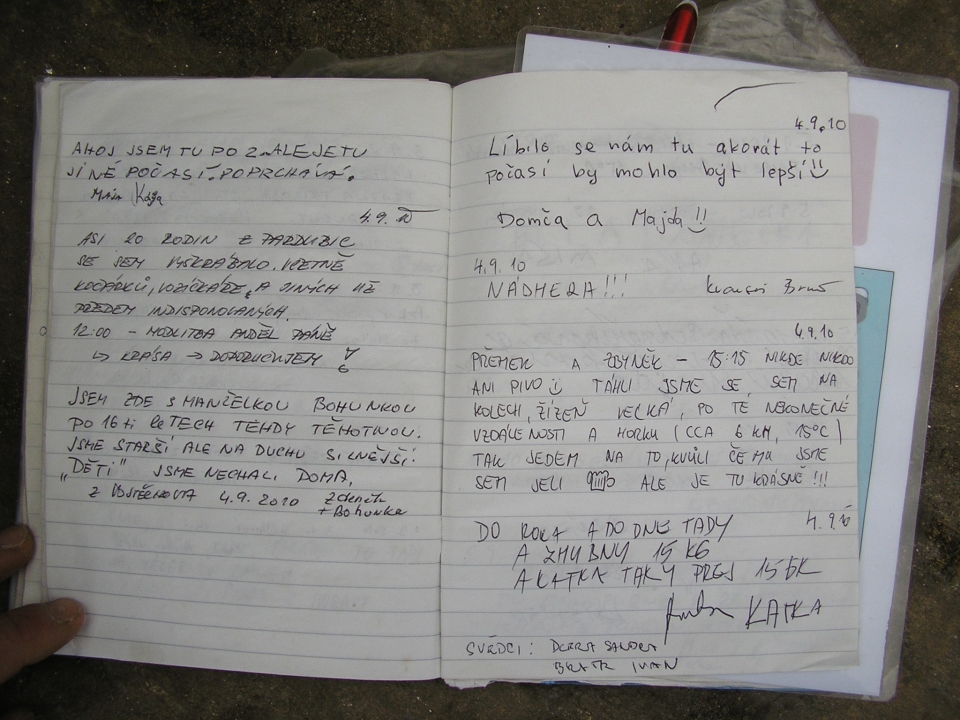 AHOJ JSEM TU PO 2. ALE JE TU
JINÉ POČASÍ. POPRCHÁVÁ.
Kája
4.9. 10
ASI 20 RODIN Z PARDUBIC
SE SEM VYŠKRÁBALO. VČETNĚ
KOČÁRKŮ, VOZÍČKÁŘE, A JINÝCH UŽ
PŘEDEM INDISPONOVANÝCH.
12:00 – MODLITBA ANDĚL PÁNĚ
↳ KRÁSA → DOPORUČUJEM
JSEM ZDE S MANŽELKOU BOHUNKOU
PO 16ti leTECH TEHDY TĚHOTNOU.
JSME STARŠÍ ALE NA DUCHU SILNĚJŠÍ.
„DĚTI" JSME NECHALI DOMA,
Z 4.9.2010 Zdeněk
+ Bohunka
4.9.10
Líbilo se nám tu akorát to
počasí by mohlo být lepší
Domča a Majda!!
4.9.10
NÁDHERA!!! Brno
4.9.10
PŘEMEK A ZBYNĚK – 15:15 NIKDE NIKDO
ANI PIVO TÁHLI JSME SE SEM NA
KOLECH, ŽÍZEŇ VELKÁ, PO TÉ NEKONEČNÉ
VZDÁLENOSTI A HORKU (CCA 6 KM, 15°C)
TAK JEDEM NA TO, KVŮLI ČEMU JSME
SEM JELI ALE JE TU KRÁSNĚ!!!
4.9.10
DO ROKA A DO DNE TADY
A ZHUBNY 15 KG
A KATKA TAKY PREJ 15
KATKA
SVĚDCI:
BRATR IVAN